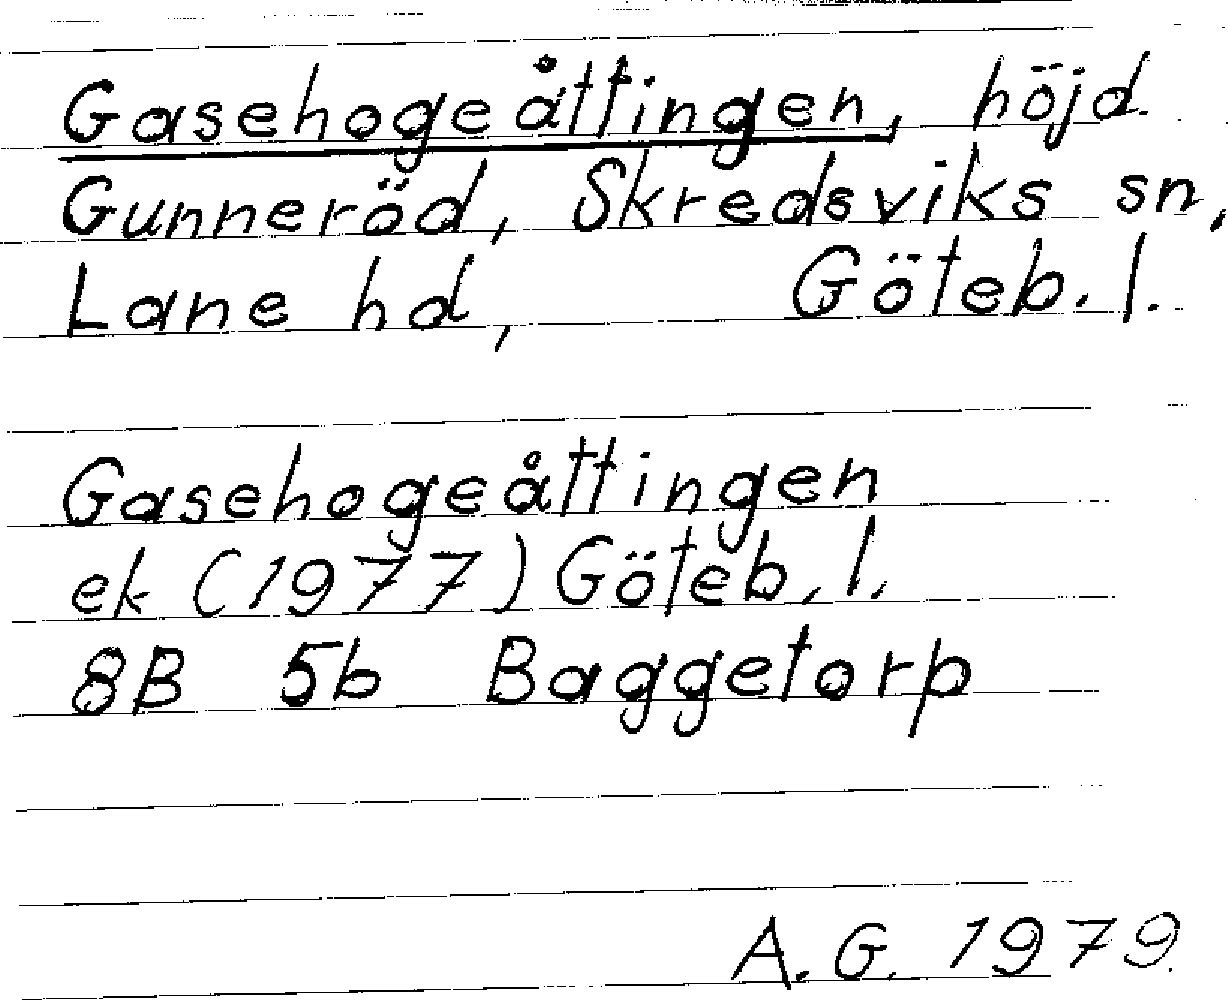 Gasehogeåttingen, höjd
Gunneröd, Skredsviks sn,
Lane hd, Göteb. l.
Gasehogeåttingen
ek (1977) Göteb. l.
8B 5b Baggetorp
A. G. 1979.